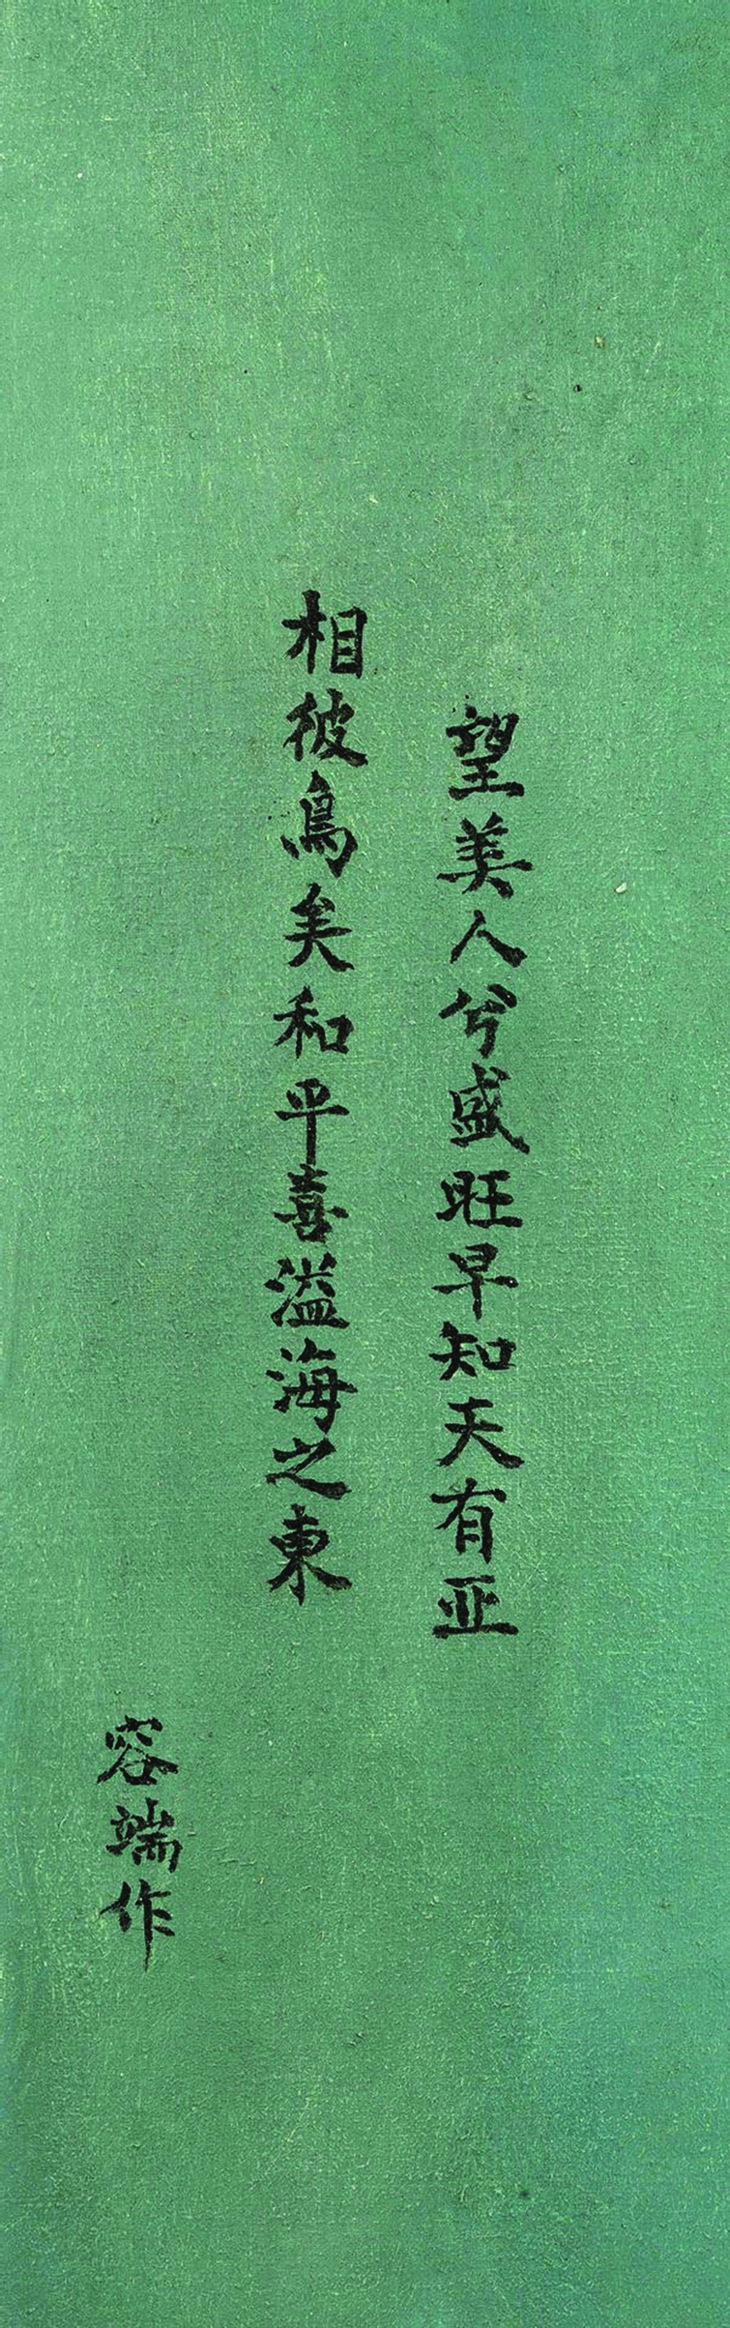 望美人兮盛旺早知天有亚
相彼鳥矣和平喜溢海之東
容端作